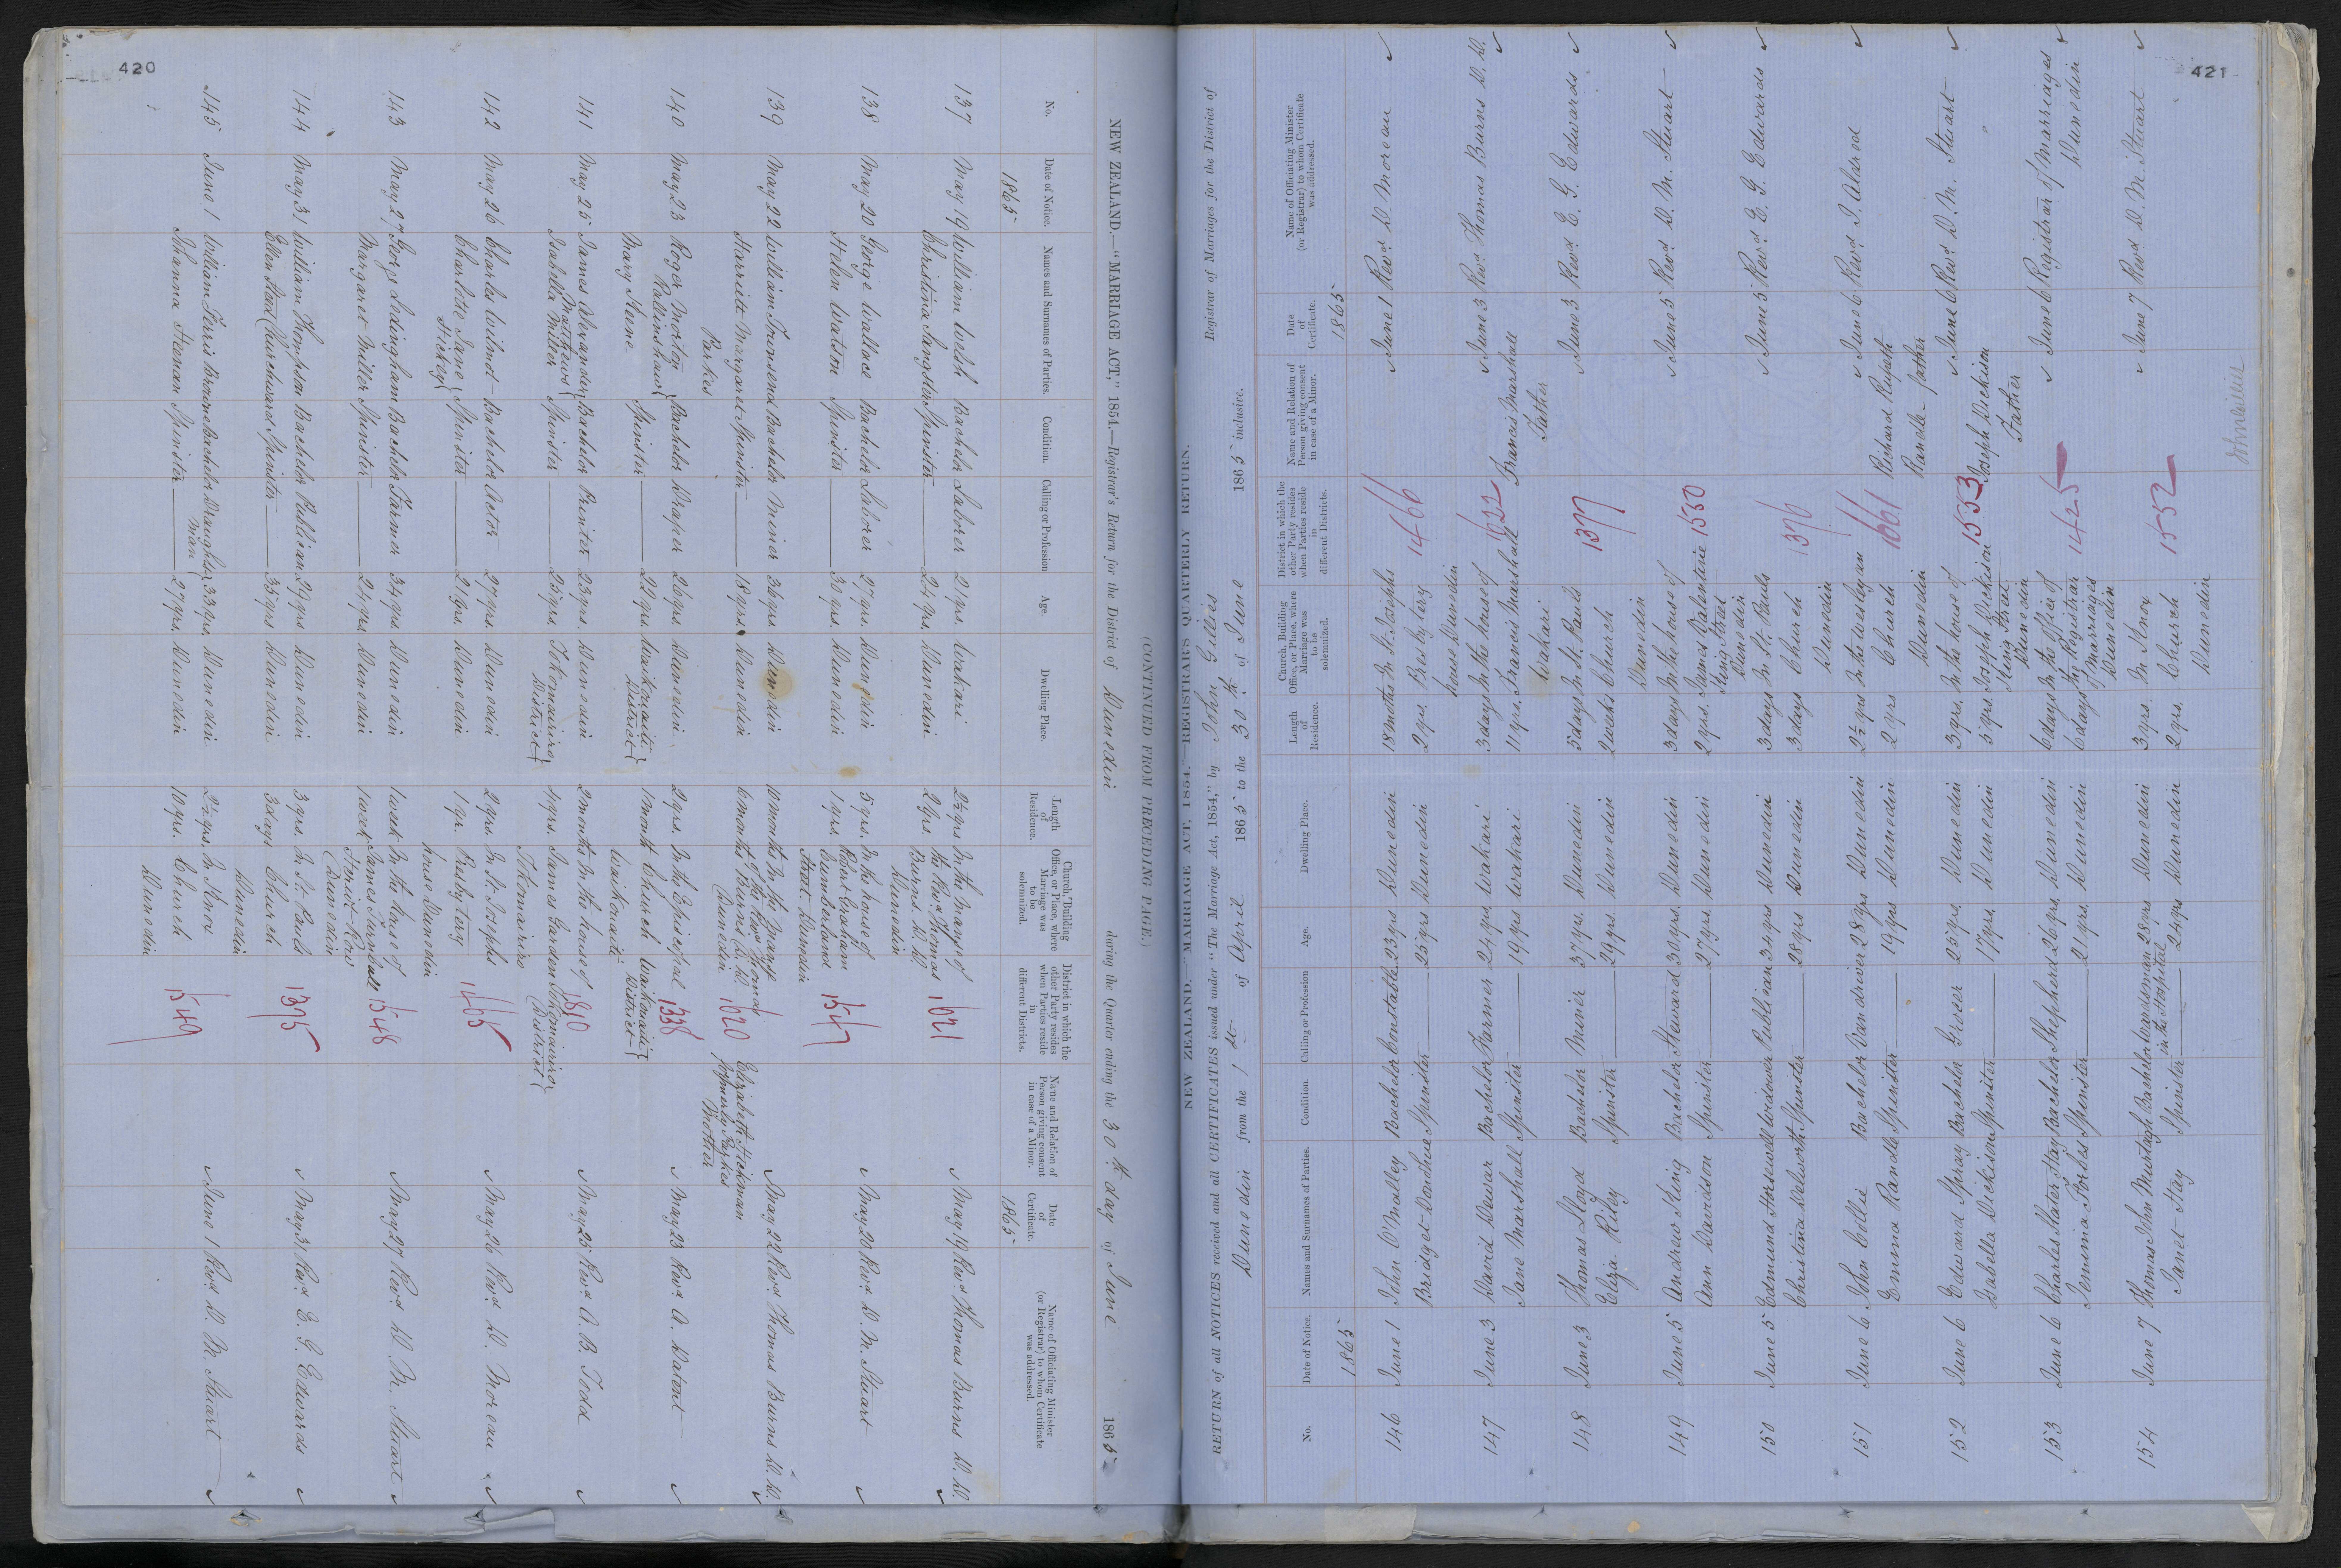 420
NEW ZEALAND.—"MARRIAGE ACT," 1854.—Registrar's Return for the District of Dunedin during the Quarter ending the 30th day of June 1865
(CONTINUED FROM PRECEDING PAGE.)
No. Date of Notice. Names and Surnames of Parties. Condition. Calling or Profession Age. Dwelling Place. Length of Residence. Church, Building Office, or Place, where Marriage was to be solemnized. District in which the other Party resides when Parties reside in different Districts. Name and Relation of Person giving consent in case of a Minor. Date of Certificate. Name of Officiating Minister (or Registrar) to whom Certificate was addressed.
1865 1865
137 May 19 William Welsh Bachelor Laborer 21 yrs. Wakari 2½ yrs In the Manse of 1621 May 19 Revd Thomas Burns D.D.
Christina Sangster Spinster 24 yrs. Dunedin 2 yrs. the Revd Thomas
Burns D.D.
Dunedin
138 May 20 George Wallace Bachelor Laborer 27 yrs. Dunedin 5 yrs. In the house of 1547 May 20 Revd D. M. Stuart
Helen Watson Spinster 30 yrs. Dunedin 1 yrs. Robert Graham
Cumberland
Street Dunedin
139 May 22 William Townsend Bachelor Miner 36 yrs. Dunedin 10 months In the Manse 1620 Elizabeth Hickman May 22 Revd Thomas Burns D.D.
Harriett Margaret Spinster 18 yrs. Dunedin 6 months of the Revd Thomas formerly Parkes
Parkes Burns D.D. Mother
Dunedin
140 May 23 Roger Morton Bachelor Draper 26 yrs. Dunedin 2 yrs. In the Episcopal 1338 May 23 Revd A. Dasent
Rallinshaw
Mary Hesne Spinster 22 yrs. Waikouaiti District 1 month Church Waikouaiti District
Waikouaiti
141 May 25 James Alexander Bachelor Printer 23 yrs. Dunedin 2 months In the house of 1810 May 25 Revd A. B. Todd
Mathews
Isabella Miller Spinster 25 yrs. Tokomairiro District 4 yrs. James Garden Tokomairiro District
Tokomairiro
142 May 26 Charles Wilmot Bachelor Actor 27 yrs. Dunedin 2 yrs. In St. Josephs 1465 May 26 Revd D. Moreau
Charlotte Jane Spinster 21 yrs. Dunedin 1 yr. Presbytery
Hickey house Dunedin
143 May 27 George Ledingham Bachelor Farmer 34 yrs. Dunedin 1 week In the house of 1548 May 27 Revd D. M. Stuart
Margaret Miller Spinster 21 yrs. Dunedin 1 week James Turnball
Heriot Row
Dunedin
144 May 31 William Thompson Bachelor Publican 29 yrs Dunedin 3 yrs. In St. Pauls 1375 May 31 Revd E. G. Edwards
Ellen Steed Churchward Spinster 35 yrs Dunedin 3 days Church
Dunedin
145 June 1 William Ferris Browne Bachelor Draughtsman 33 yrs. Dunedin 2½ yrs. In Knox 1549 June 1 Revd D. M. Stuart
Johanna Heenan Spinster 27 yrs. Dunedin 10 yrs. Church
Dunedin
421
NEW ZEALAND.—"MARRIAGE ACT, 1854."—REGISTRAR'S QUARTERLY RETURN.
RETURN of all NOTICES received and all CERTIFICATES issued under "The Marriage Act, 1854," by John Gillies Registrar of Marriages for the District of
Dunedin from the 1st of April 1865 to the 30th of June 1865 inclusive.
No. Date of Notice. Names and Surnames of Parties. Condition. Calling or Profession Age. Dwelling Place. Length of Residence. Church, Building Office, or Place, where Marriage was to be solemnized. District in which the other Party resides when Parties reside in different Districts. Name and Relation of Person giving consent in case of a Minor. Date of Certificate. Name of Officiating Minister (or Registrar) to whom Certificate was addressed.
1865 1865
146 June 1 John O'Malley Bachelor Constable 23 yrs Dunedin 18 months In St. Josephs 1466 June 1 Revd D. Moreau
Bridget Donohue Spinster 25 yrs Dunedin 2 yrs. Presbytery
house Dunedin
147 June 3 David Dewar Bachelor Farmer 24 yrs Wakari 3 days In the house of 1622 Francis Marshall June 3 Revd Thomas Burns D.D.
Jane Marshall Spinster 19 yrs Wakari 11 yrs. Francis Marshall Father
Wakari
148 June 3 Thomas Lloyd Bachelor Miner 37 yrs. Dunedin 5 days In St. Pauls 1377 June 3 Revd E. G. Edwards
Eliza Riley Spinster 29 yrs. Dunedin 2 weeks Church
Dunedin
149 June 5 Andrew King Bachelor Steward 30 yrs. Dunedin 3 days In the house of 1550 June 5 Revd D. M. Stuart
Ann Davidson Spinster 27 yrs. Dunedin 2 yrs. James Valentine
King Street
Dunedin
150 June 5 Edmund Horsewell Widower Publican 34 yrs Dunedin 3 days In St. Pauls 1376 June 5 Revd E. G. Edwards
Christina Delworth Spinster 28 yrs Dunedin 3 days Church
Dunedin
151 June 6 John Collie Bachelor Vandriver 28 yrs Dunedin 2½ yrs In the Wesleyan 1661 Richard Rupeth June 6 Revd I. Aldred
Emma Randle Spinster 19 yrs Dunedin 2 yrs Church Randle father
Dunedin
152 June 6 Edward Spray Bachelor Grocer 25 yrs. Dunedin 3 yrs. In the house of 1553 Joseph Dickison June 6 Revd D. M. Stuart
Isabella Dickison Spinster 17 yrs. Dunedin 5 yrs. Joseph Dickison Father
King Street
Dunedin
153 June 6 Charles Slater Hay Bachelor Shepherd 26 yrs. Dunedin 6 days In the office of 1425 June 6 Registrar of Marriages
Jemima Forbes Spinster 21 yrs. Dunedin 6 days the Registrar Dunedin
of Marriages
Dunedin
154 June 7 Thomas John Murtagh Bachelor Wardsman in the Hospital 28 yrs Dunedin 3 yrs. In Knox 1552 June 7 Revd D. M. Stuart
Janet Hay Spinster 24 yrs Dunedin 2 yrs. Church
Dunedin